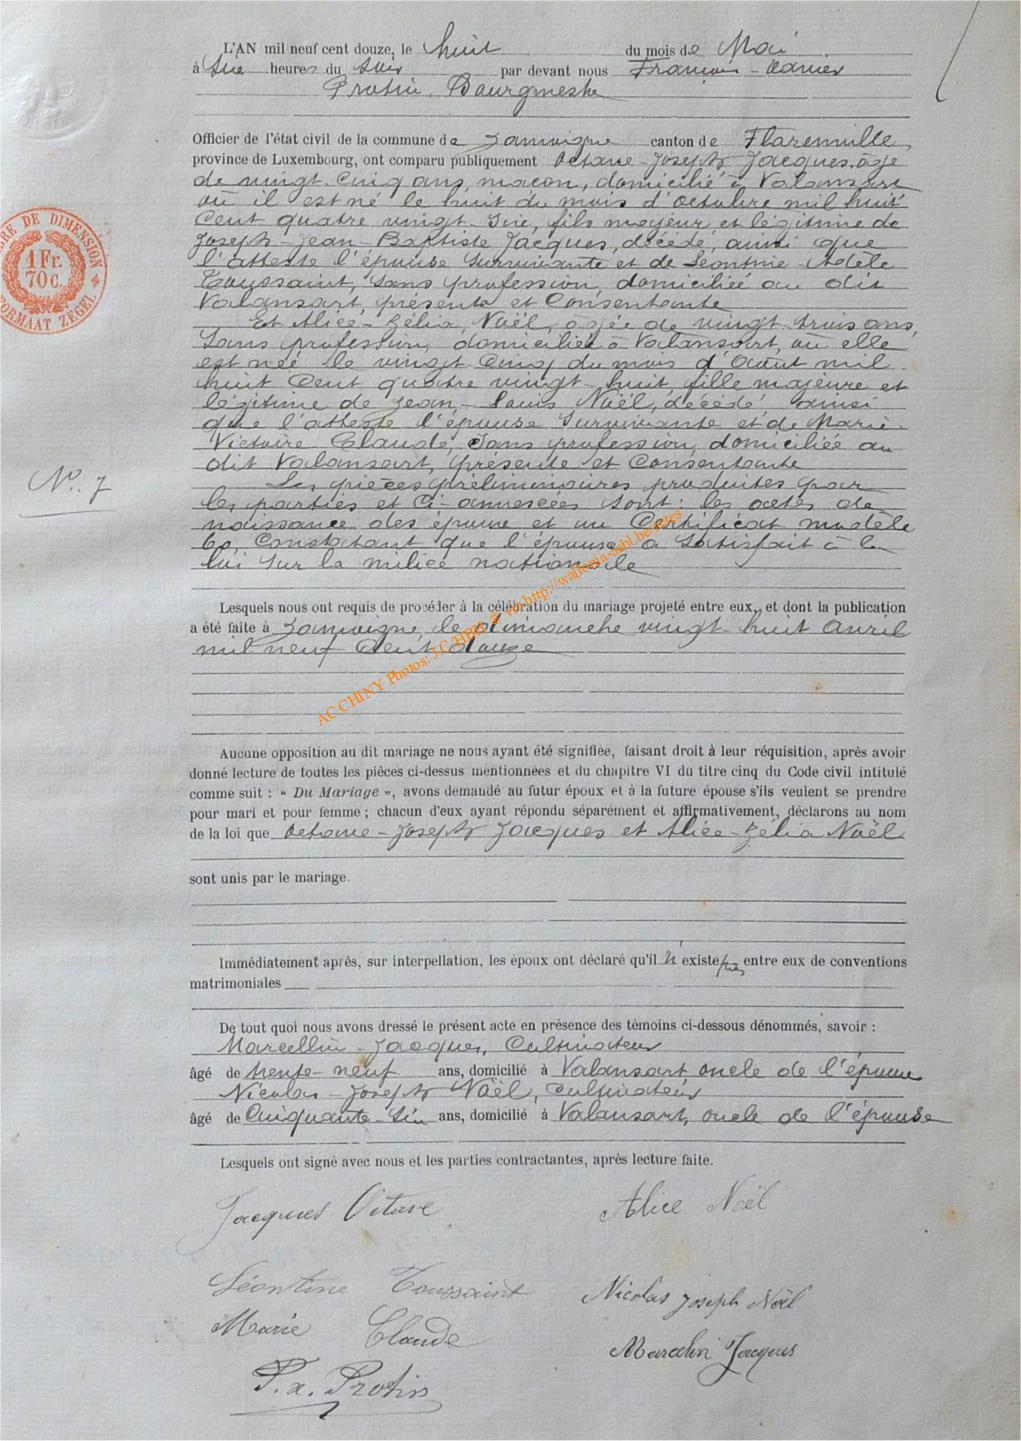 L'AN mil neuf cent douze, le huit du mois de Mai
à six heures du soir par devant nous François-Xavier
Protin, Bourgmestre
Officier de l'état civil de la commune de Jamoigne canton de Florenville,
province de Luxembourg, ont comparu publiquement Octave-Joseph Jacques, âgé
de vingt-cinq ans, maçon, domicilié à Valansart
où il est né le huit du mois d'octobre mil huit
cent quatre vingt-six, fils majeur et légitime de
Joseph-Jean-Baptiste Jacques, décédé, ainsi que
l'atteste l'épouse survivante et de Léontine-Adèle
Toussaint, sans profession, domiciliée au dit
Valansart, présente et consentante
Et Alice-Zélia, Noël, âgée de vingt-trois ans,
sans profession, domiciliée à Valansart, où elle
est née le vingt-cinq du mois d'Août mil
huit cent quatre vingt-huit, fille majeure et
légitime de Jean-Louis Noël, décédé ainsi
que l'atteste l'épouse survivante et de Marie-
Victoire Claude, sans profession, domiciliée au
dit Valansart, présente et consentante
Les pièces préliminaires produites par
les parties et ci-annexées sont: les actes de
naissance des époux et un certificat modèle
60, constatant que l'époux a satisfait à la
loi sur la milice nationale
N° 7
BRE DE DIMENSION
1 Fr.
70 c.
FORMAAT ZEGEL
Lesquels nous ont requis de procéder à la célébration du mariage projeté entre eux, et dont la publication
a été faite à Jamoigne, le dimanche vingt-huit avril
mil neuf cent douze
AC CHINY Photos: J.C. HPH @ via http://wallonia-asbl.be/actes
Aucune opposition au dit mariage ne nous ayant été signifiée, faisant droit à leur réquisition, après avoir
donné lecture de toutes les pièces ci-dessus mentionnées et du chapitre VI du titre cinq du Code civil intitulé
comme suit : « Du Mariage », avons demandé au futur époux et à la future épouse s'ils veulent se prendre
pour mari et pour femme ; chacun d'eux ayant répondu séparément et affirmativement, déclarons au nom
de la loi que Octave-Joseph Jacques et Alice-Zélia Noël
sont unis par le mariage.
Immédiatement après, sur interpellation, les époux ont déclaré qu'il n'existe pas entre eux de conventions
matrimoniales
De tout quoi nous avons dressé le présent acte en présence des témoins ci-dessous dénommés, savoir :
Marcellin-Jacques, Cultivateur
âgé de trente-neuf ans, domicilié à Valansart oncle de l'époux
Nicolas-Joseph Noël, cultivateur
âgé de cinquante-six ans, domicilié à Valansart, oncle de l'épouse
Lesquels ont signé avec nous et les parties contractantes, après lecture faite.
Jacques Octave Alice Noël
Léontine Toussaint Nicolas Joseph Noël
Marie Claude Marcelin Jacques
F. x. Protin